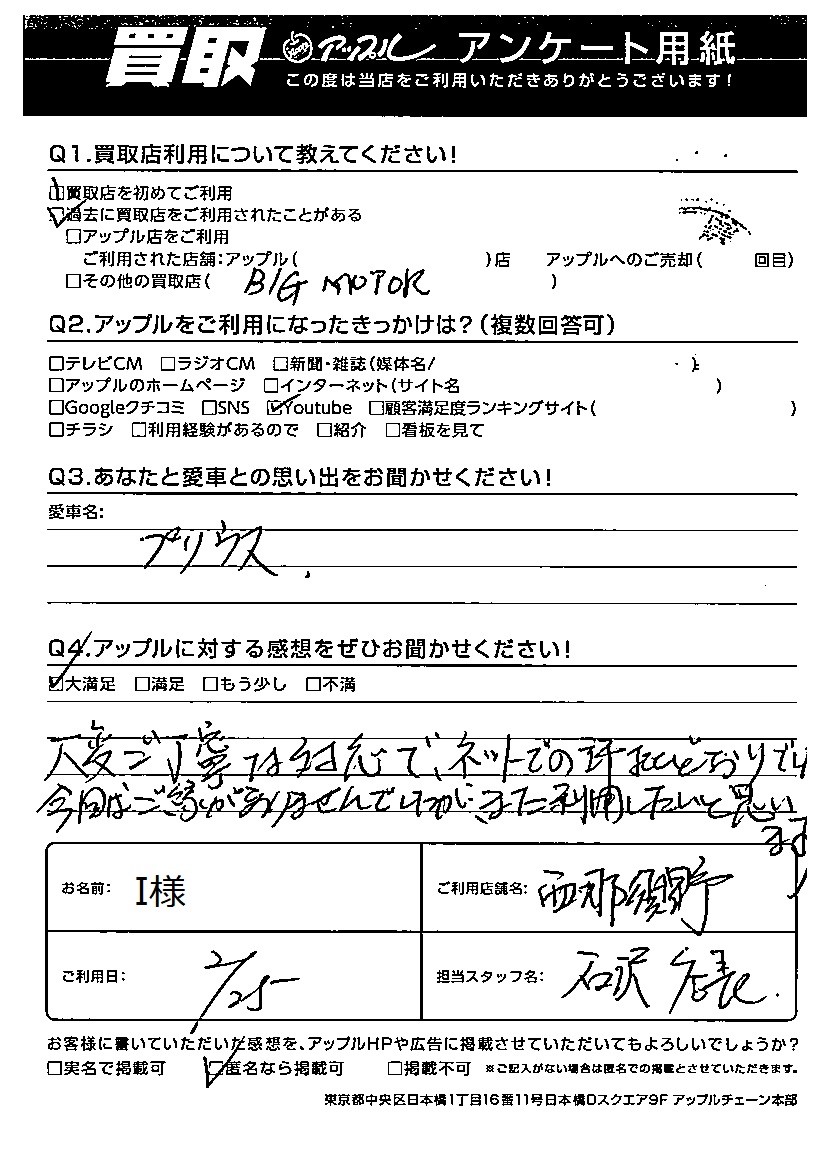 買取 アップル アンケート用紙
この度は当店をご利用いただきありがとうございます!
Q1.買取店利用について教えてください!
□買取店を初めてご利用
☑過去に買取店をご利用されたことがある
□アップル店をご利用
ご利用された店舗:アップル( )店 アップルへのご売却( 回目)
□その他の買取店( BIG MOTOR )
Q2.アップルをご利用になったきっかけは?(複数回答可)
□テレビCM □ラジオCM □新聞・雑誌(媒体名/ )
□アップルのホームページ □インターネット(サイト名 )
□Googleクチコミ □SNS ☑Youtube □顧客満足度ランキングサイト( )
□チラシ □利用経験があるので □紹介 □看板を見て
Q3.あなたと愛車との思い出をお聞かせください!
愛車名:
プリウス
Q4.アップルに対する感想をぜひお聞かせください!
☑大満足 □満足 □もう少し □不満
大変ご丁寧な対応で、ネットでの評判どおりでし
今回はご縁がありませんでしたが、また利用したいと思い
ます
お名前: I様 ご利用店舗名: 西那須野
ご利用日: 2/25 担当スタッフ名: 石沢 店長
お客様に書いていただいた感想を、アップルHPや広告に掲載させていただいてもよろしいでしょうか?
□実名で掲載可 ☑匿名なら掲載可 □掲載不可 ※ご記入がない場合は匿名での掲載とさせていただきます。
東京都中央区日本橋1丁目16番11号日本橋Dスクエア9F アップルチェーン本部